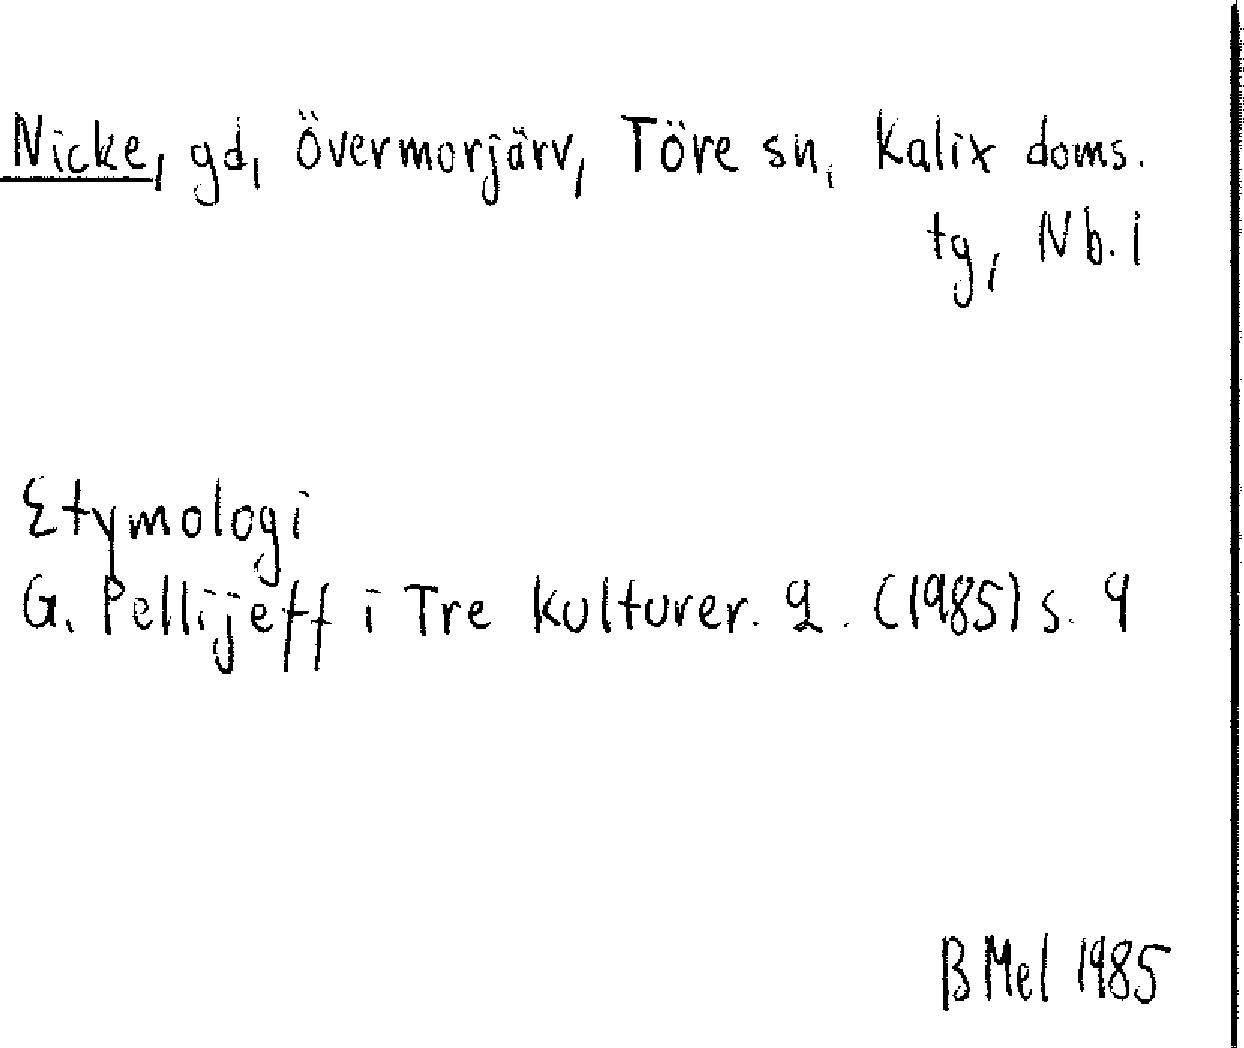 Nicke, gd, Övermorjärv, Töre sn, Kalix doms.
tg, Nb. l
Etymologi
G. Pellijeff i Tre kulturer. 2. (1985) s. 9
B Mel 1985